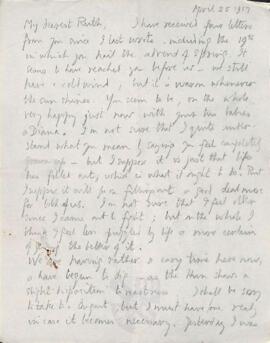 April 25 1917
My dearest Ruth, I have received four letters
from you since I last wrote including the 19th
in which you hail the advent of Spring. It
seems to have reached you before us – we still
have a cold wind, but it is warm whenever
the sun shines. You seem to be, on the whole,
very happy just now with your two babies
& Diana. I'm not sure that I quite under-
stand what you mean by saying you feel completely
grown up – but I suppose it is just that life
has filled out, which is what it ought to do. But
I suppose it will go on filling out a good deal more
for both of us. I'm not sure that I feel older
since I came out to fight; but on the whole I
think I feel less puzzled by life & more certain
of the better of it.
We are having rather a cosy time here now,
& have begun to dig – as the Hun shows a
slight disposition to
to take to a dugout, but I must have one ready
in case it becomes necessary. Yesterday I was